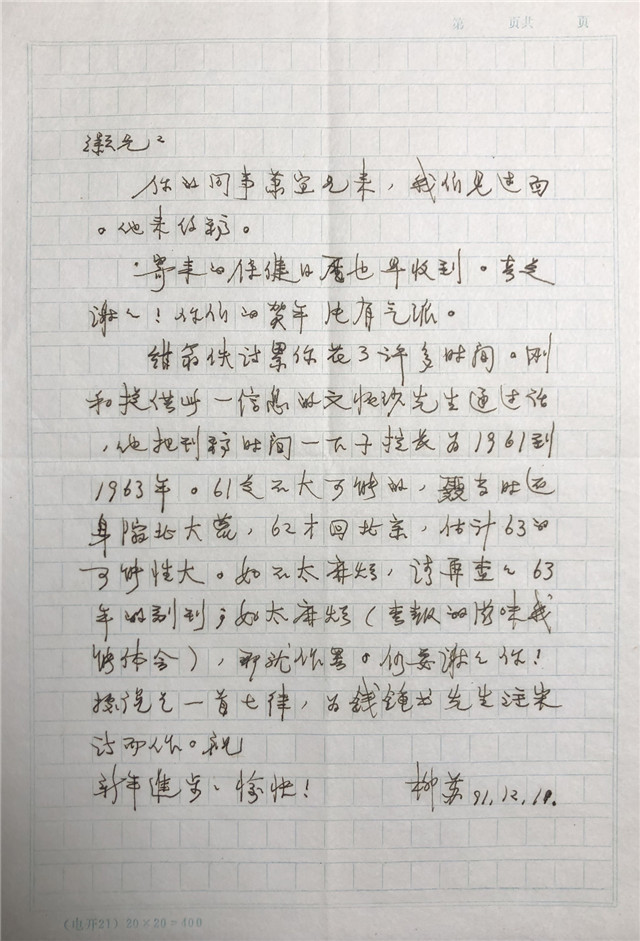 第 页共 页
灏兄：
你的同事萧宜兄来，我们见过面
。他来约稿。
寄来的保健日历也早收到。真是
谢谢！你们的贺年片有气派。
绀翁佚诗累你花了许多时间。刚
和提供此一信息的文怀沙先生通过话
，他把到稿时间一下子拉长为1961到
1963年。61是不大可能的，聂当时还
身陷北大荒，62才回北京，估计63的
可能性大。如不太麻烦，请再查查63
年的副刊；如太麻烦（查报的滋味我
能体会），那就作罢。仍要谢谢你！
据说是一首七律，为钱锺书先生注宋
诗而作。祝
新年进步、愉快！ 柳苏 91.12.10.
（电开21）20×20=400